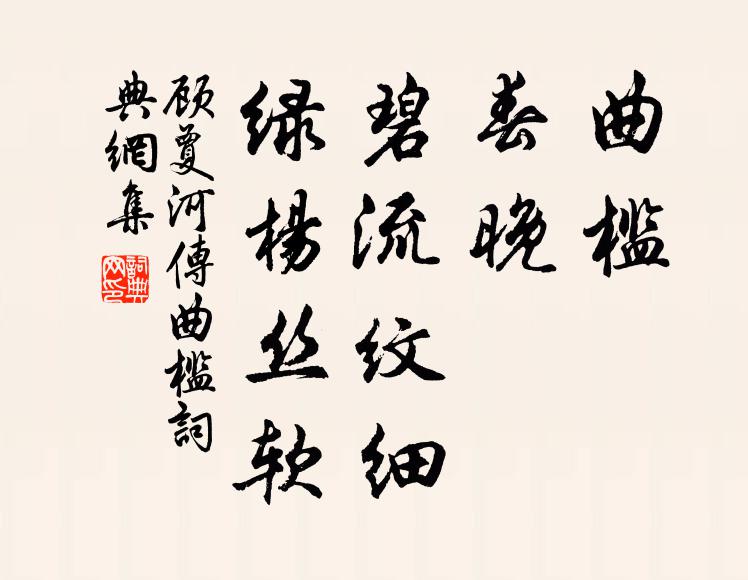 曲槛
春晚
碧流纹细
绿杨丝软
顾夐河傳曲槛詞
典網集
詞典網印